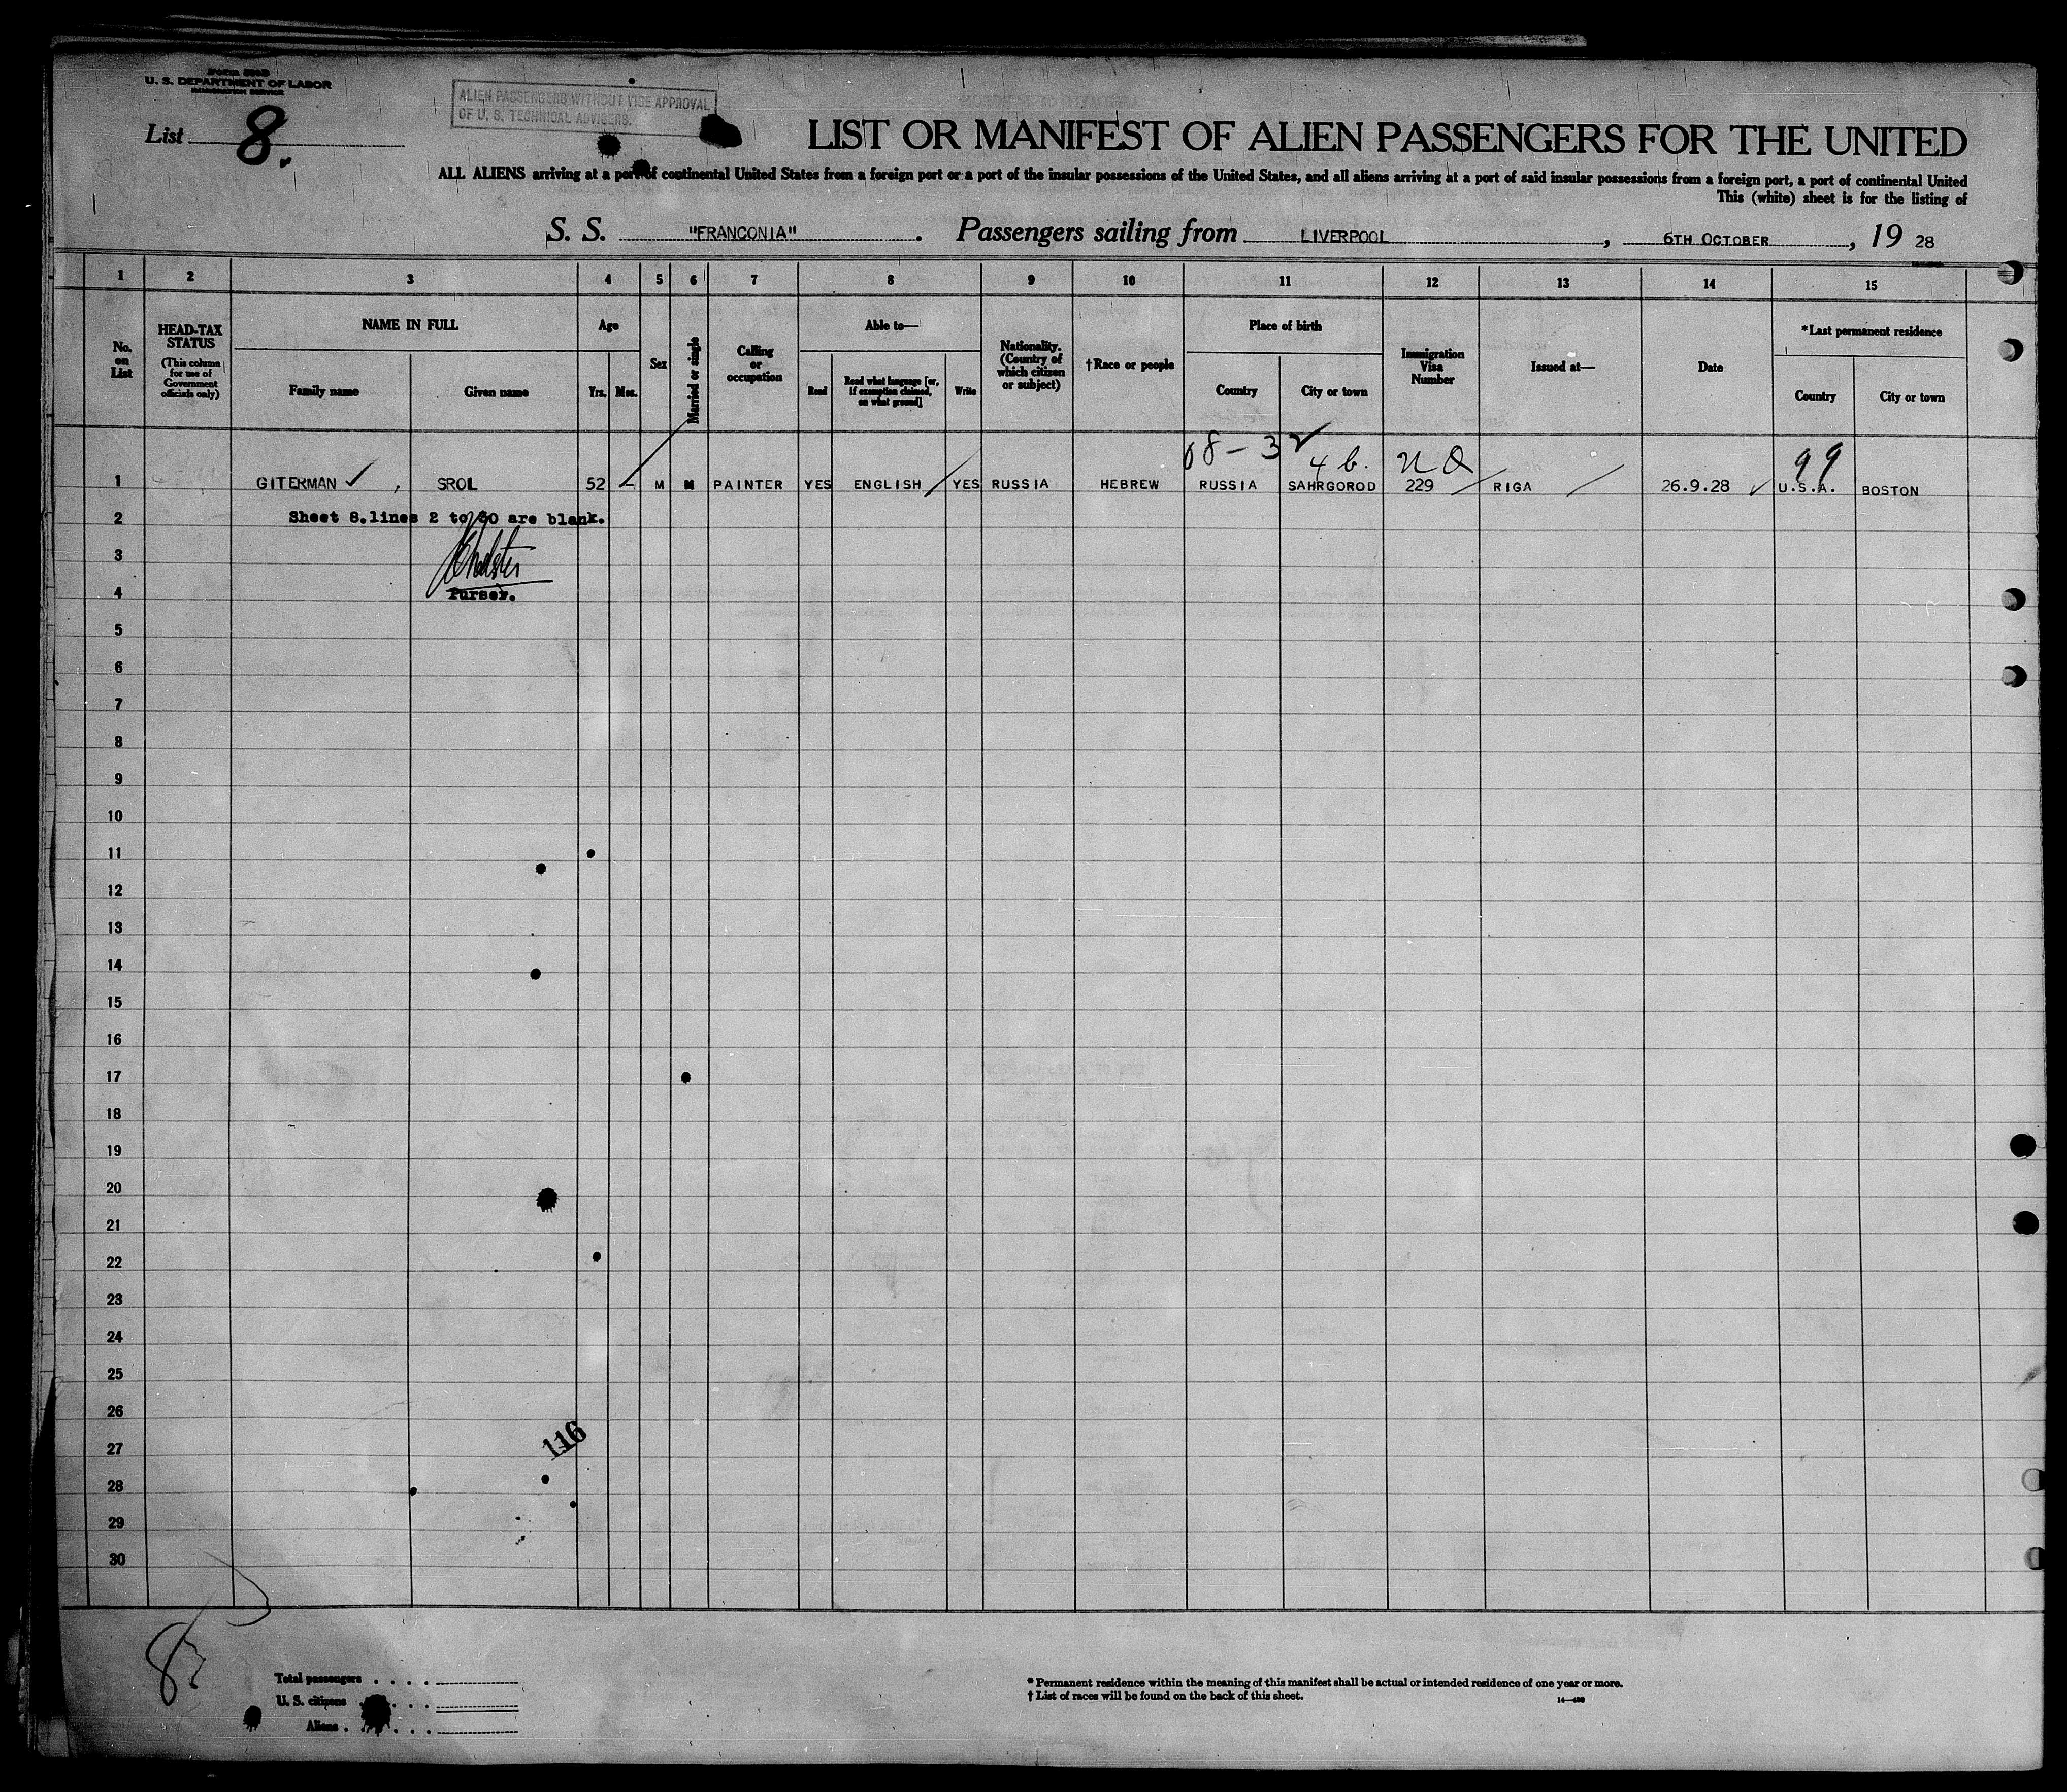 U. S. DEPARTMENT OF LABOR
IMMIGRATION SERVICE
List 8.
ALIEN PASSENGERS WITHOUT VICE APPROVAL
OF U. S. TECHNICAL ADVISERS.
LIST OR MANIFEST OF ALIEN PASSENGERS FOR THE UNITED
ALL ALIENS arriving at a port of continental United States from a foreign port or a port of the insular possessions of the United States, and all aliens arriving at a port of said insular possessions from a foreign port, a port of continental United
This (white) sheet is for the listing of
S. S. "FRANCONIA". Passengers sailing from LIVERPOOL, 6TH OCTOBER, 19 28
1 2 3 4 5 6 7 8 9 10 11 12 13 14 15
No. on List
HEAD-TAX STATUS
(This column for use of Government officials only)
NAME IN FULL
Family name Given name
Age
Yrs. Mos.
Sex
Married or single
Calling or occupation
Able to—
Read
Read what language [or, if exemption claimed, on what ground]
Write
Nationality. (Country of which citizen or subject)
†Race or people
Place of birth
Country City or town
Immigration Visa Number
Issued at—
Date
*Last permanent residence
Country City or town
4 b. 99
1 GITERMAN ✓, SROL 52 M M PAINTER YES ENGLISH YES RUSSIA HEBREW RUSSIA SAHRGOROD 229 RIGA 26.9.28 U.S.A. BOSTON
2 Sheet 8.lines 2 to 30 are blank.
3
4 Purser.
5
6
7
8
9
10
11
12
13
14
15
16
17
18
19
20
21
22
23
24
25
26
116
27
28
29
30
Total passengers . . . .
U. S. citizens . . .
Aliens . . . .
* Permanent residence within the meaning of this manifest shall be actual or intended residence of one year or more.
† List of races will be found on the back of this sheet.